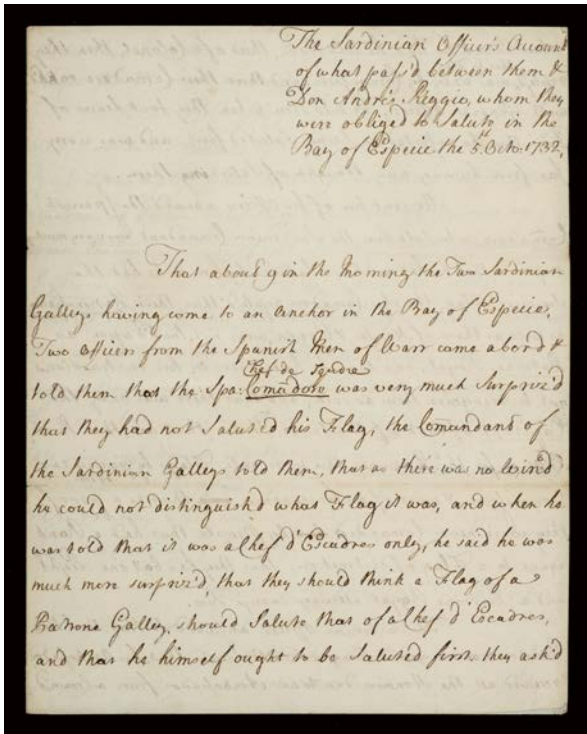 The Sardinian Officer's Account
of what pass'd between them &
Don Andrès Reggio, whom they
were obliged to Salute in the
Bay of Especie the 5th Octo. 1732.
That about 9 in the Morning the Two Sardinian
Galleys having come to an Anchor in the Bay of Especie,
Two Officers from the Spanish Men of Warr came abord &
Chef de
told them that the Spa: Comādoro was very much Surpriz'd
that they had not Saluted his Flag, the Comandant of
the Sardinian Galleys told them, that as there was no Wind
he could not distinguish'd what Flag it was, and when he
was told that it was a Chef d'Escadres only, he said he was
much more surpriz'd, that they should think a Flag of a
Patrone Galley, should Salute that of a Chef d'Escadres,
and that he himself ought to be Saluted first. they ask'd